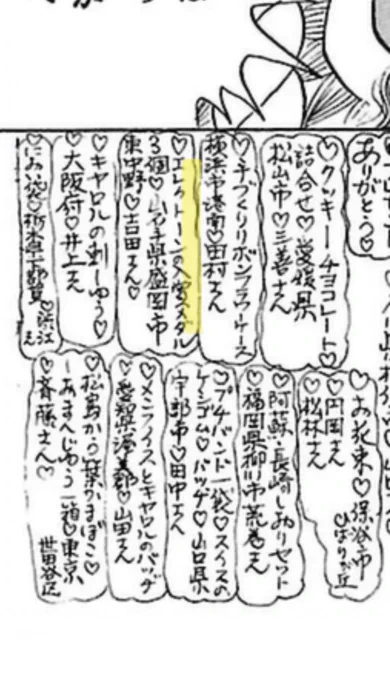 ありがとう♡
♡クッキー♡チョコレート♡
詰合せ♡愛媛県
松山市♡三善さん
♡手づくりリボンフラワーケース
横浜市港南♡田村さん
♡エレクトーンの入賞メダル
3個♡岩手県盛岡市
東中野♡吉田さん♡
♡キャロルの刺しゅう♡
大阪府♡井上さん
♡にみに袋♡栃木県下都賀♡渋江さん
♡お花束♡保谷市
ひばりが丘
♡円岡さん
♡松林さん
♡阿蘇♡長崎しおりセット
♡福岡県柳川市荒巻さん
♡プチバンド一袋♡スイスの
ケシゴム♡バッヂ♡山口県
宇部市♡田中さん
♡メニアイスとキャロルのバッヂ
♡愛知県渥美郡♡山田さん
♡松島から笹かまぼこ♡
あまへじゅう一箱♡東京
♡斉藤さん♡
世田谷区